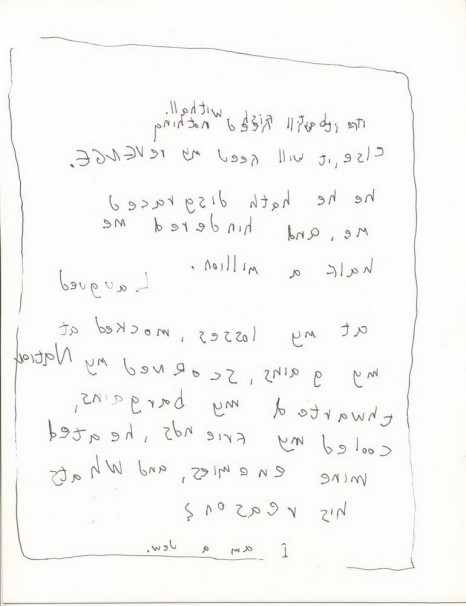 withall.
nothing
else, it will feed my revENGE.
he he hath disgraced
me, and hindered me
half a million.
Laugued
at my losses, mocked at
my gains, scorned my Nation
thwarted my bargains,
cooled my Friends, heated
mine enemies, and Whats
his reason?
I am a Jew.